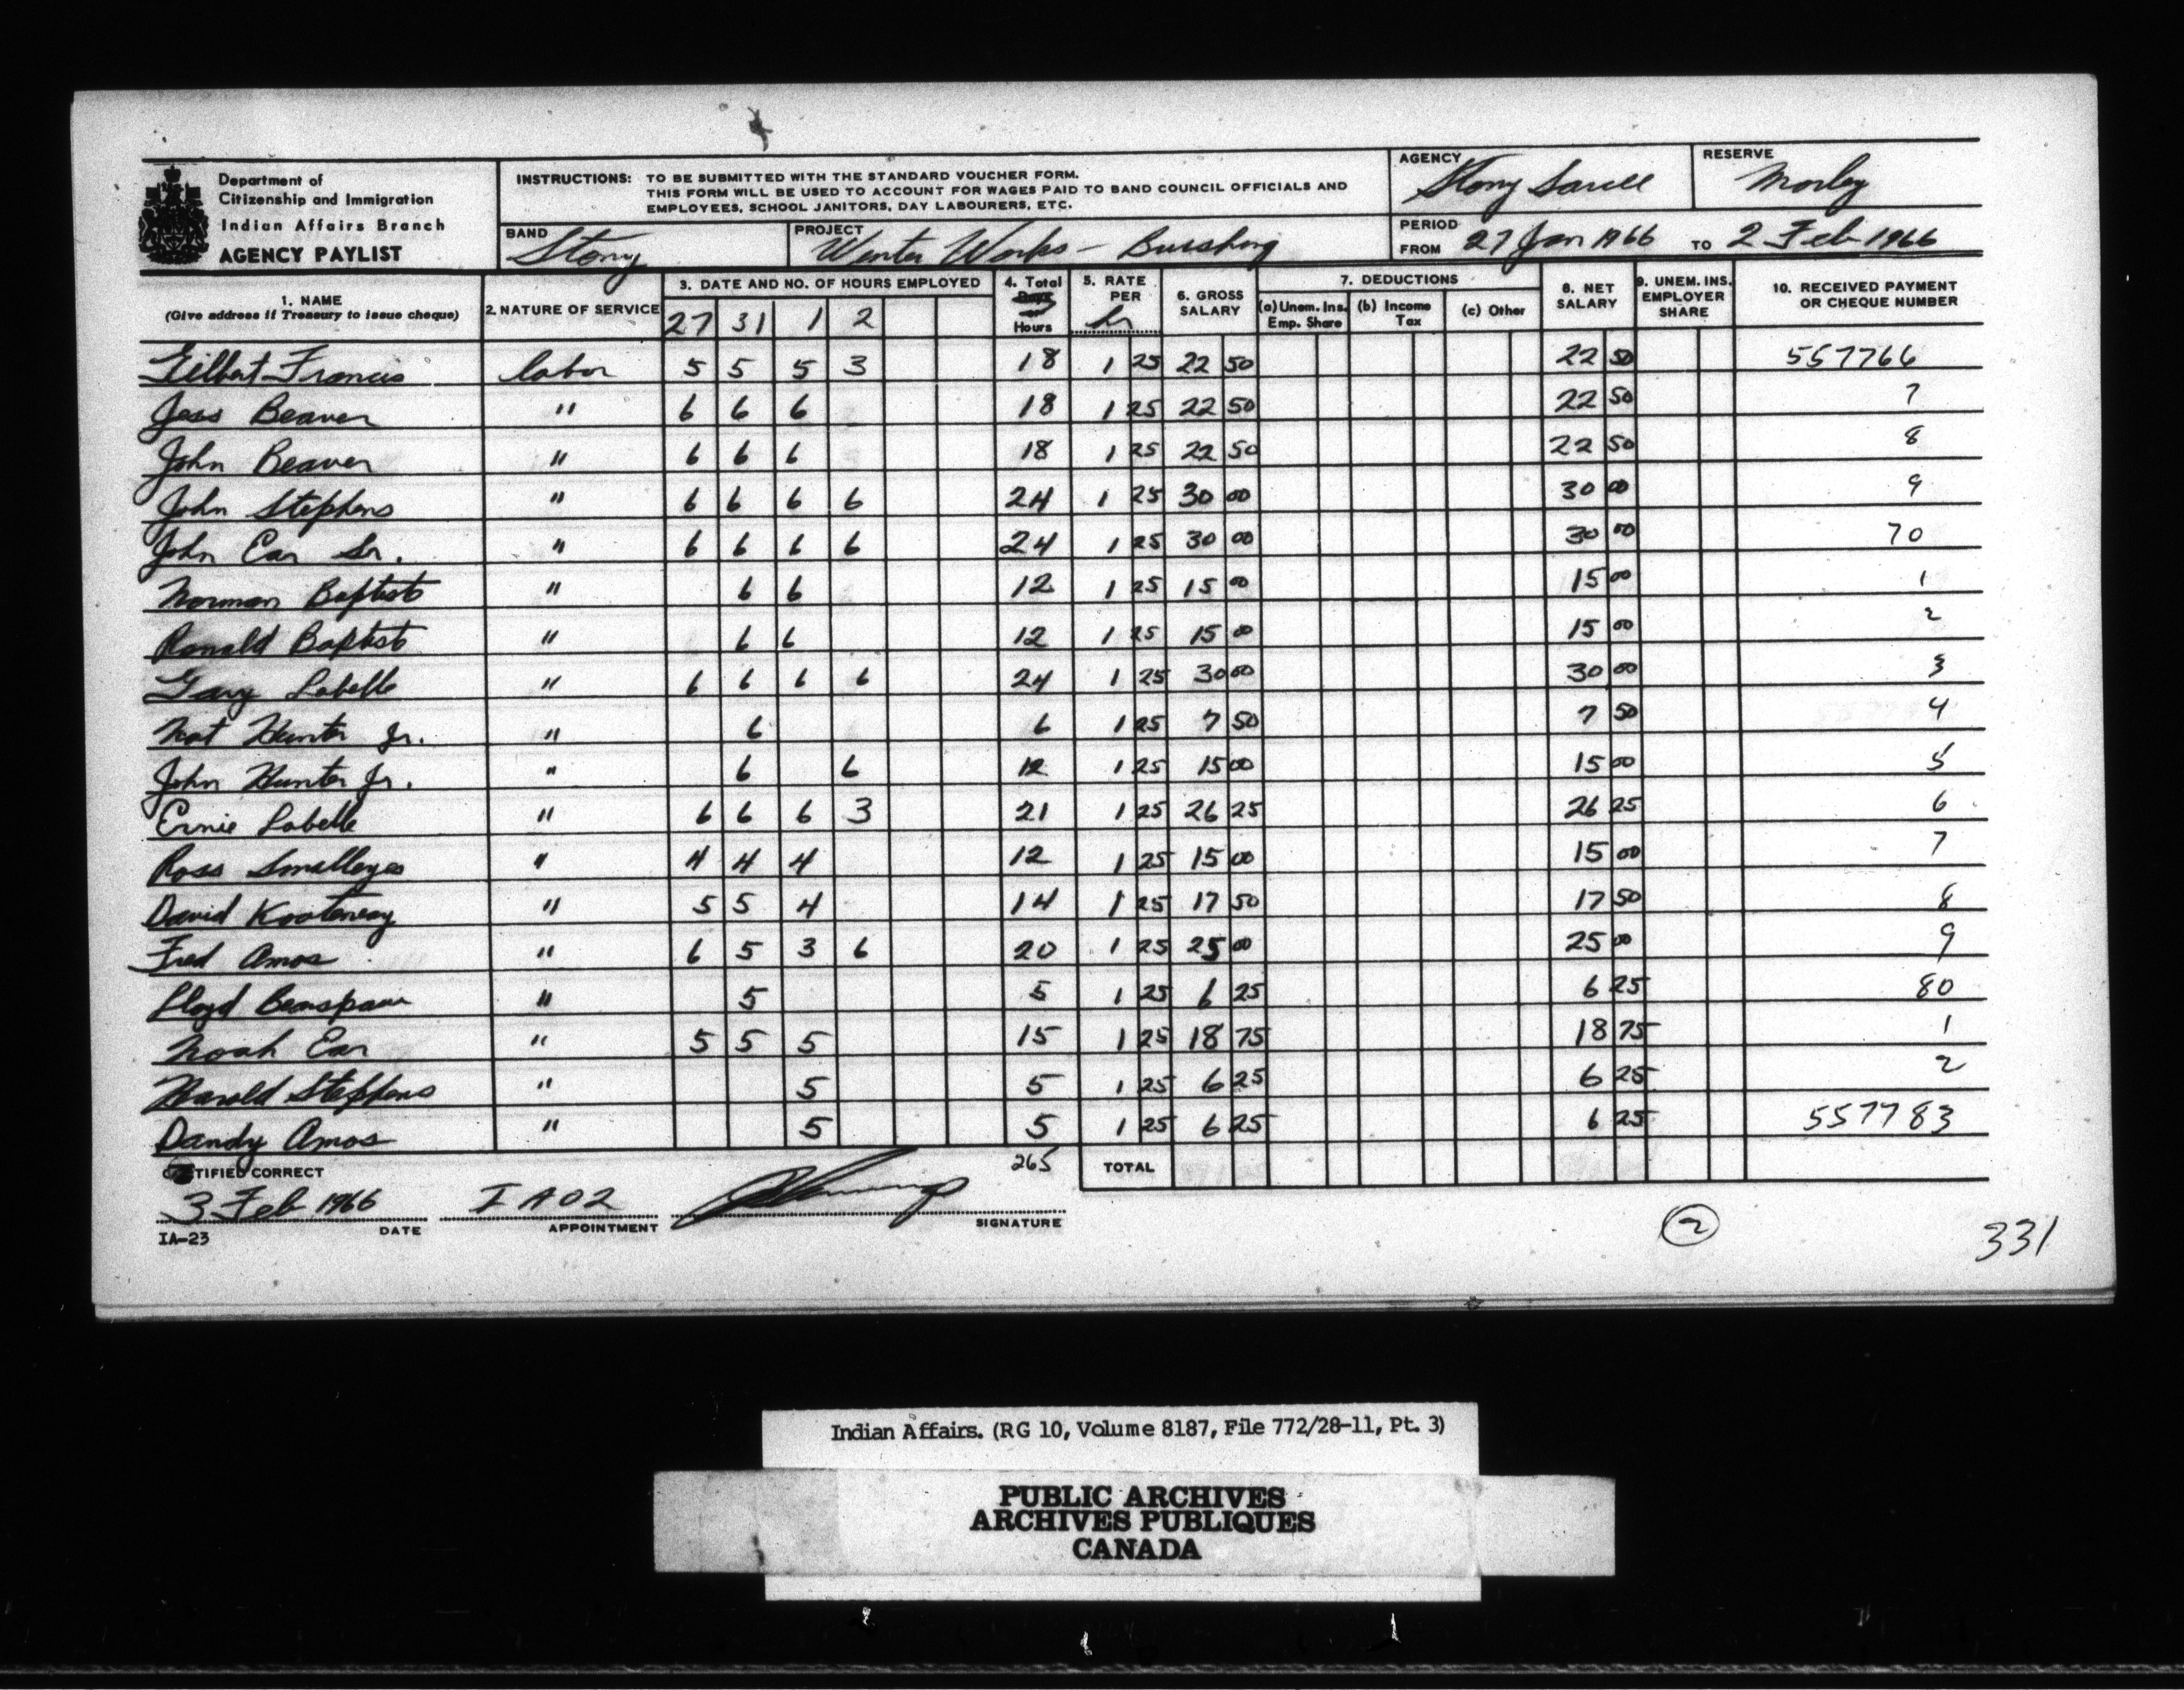 Department of
Citizenship and Immigration
Indian Affairs Branch
AGENCY PAYLIST
INSTRUCTIONS: TO BE SUBMITTED WITH THE STANDARD VOUCHER FORM.
THIS FORM WILL BE USED TO ACCOUNT FOR WAGES PAID TO BAND COUNCIL OFFICIALS AND
EMPLOYEES, SCHOOL JANITORS, DAY LABOURERS, ETC.
AGENCY Stony Sarcee
RESERVE Morley
BAND Stony
PROJECT Winter Works - Brushing
PERIOD FROM 27 Jan 1966 TO 2 Feb 1966
1. NAME (Give address if Treasury to issue cheque) 2. NATURE OF SERVICE 3. DATE AND NO. OF HOURS EMPLOYED 4. Total Days or Hours 5. RATE PER hr 6. GROSS SALARY 7. DEDUCTIONS (a) Unem. Ins. Emp. Share (b) Income Tax (c) Other 8. NET SALARY 9. UNEM. INS. EMPLOYER SHARE 10. RECEIVED PAYMENT OR CHEQUE NUMBER
27 31 1 2
Gilbert Francis labor 5 5 5 3 18 1 25 22 50 22 50 557766
Jess Beaver " 6 6 6 18 1 25 22 50 22 50 7
John Beaver " 6 6 6 18 1 25 22 50 22 50 8
John Stephens " 6 6 6 6 24 1 25 30 00 30 00 9
John Ear Sr. " 6 6 6 6 24 1 25 30 00 30 00 70
Norman Baptist " 6 6 12 1 25 15 00 15 00 1
Ronald Baptist " 6 6 12 1 25 15 00 15 00 2
Gary Labelle " 6 6 6 6 24 1 25 30 00 30 00 3
Nat Hunter Jr. " 6 6 1 25 7 50 7 50 4
John Hunter Jr. " 6 6 12 1 25 15 00 15 00 5
Ernie Labelle " 6 6 6 3 21 1 25 26 25 26 25 6
Ross Smalleyes " 4 4 4 12 1 25 15 00 15 00 7
David Kootenay " 5 5 4 14 1 25 17 50 17 50 8
Fred Amos " 6 5 3 6 20 1 25 25 00 25 00 9
Lloyd Bearspaw " 5 5 1 25 6 25 6 25 80
Noah Ear " 5 5 5 15 1 25 18 75 18 75 1
Harold Stephens " 5 5 1 25 6 25 6 25 2
Dandy Amos " 5 5 1 25 6 25 6 25 557783
CERTIFIED CORRECT 265 TOTAL
3 Feb 1966 I A O 2
DATE APPOINTMENT SIGNATURE
IA-23
2
331
Indian Affairs. (RG 10, Volume 8187, File 772/28-11, Pt. 3)
PUBLIC ARCHIVES
ARCHIVES PUBLIQUES
CANADA